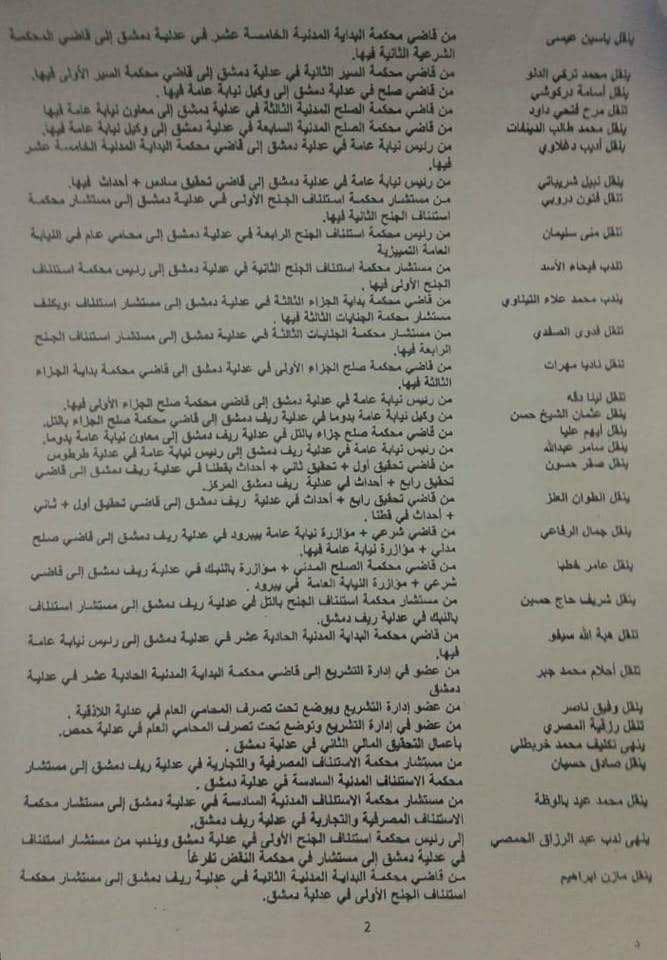 ينقل ياسين عيسى من قاضي محكمة البداية المدنية الخامسة عشر في عدلية دمشق إلى قاضي المحكمة
الشرعية الثانية فيها.
ينقل محمد تركي الدلو من قاضي محكمة السير الثانية في عدلية دمشق إلى قاضي محكمة السير الأولى فيها.
ينقل أسامة دركوشي من قاضي صلح في عدلية دمشق إلى وكيل نيابة عامة فيها .
تنقل مرح فتحي داود من قاضي محكمة الصلح المدنية الثالثة في عدلية دمشق إلى معاون نيابة عامة فيها
ينقل محمد طالب الدينفات من قاضي محكمة الصلح المدنية السابعة في عدلية دمشق إلى وكيل نيابة عامة فيها.
ينقل أديب دغلاوي من رئيس نيابة عامة في عدلية دمشق إلى قاضي محكمة البداية المدنية الخامسة عشر
فيها.
ينقل نبيل شريباتي من رئيس نيابة عامة في عدلية دمشق إلى قاضي تحقيق سادس + أحداث فيها.
تنقل فنون دروبي من مستشار محكمة استئناف الجنح الأولى في عدلية دمشق إلى مستشار محكمة
استئناف الجنح الثانية فيها.
تنقل منى سليمان من رئيس محكمة استئناف الجنح الرابعة في عدلية دمشق إلى محامي عام في النيابة
العامة التمييزية
تندب فيحاء الأسد من مستشار محكمة استئناف الجنح الثانية في عدلية دمشق إلى رئيس محكمة استئناف
الجنح الأولى فيها .
يندب محمد علاء التيناوي من قاضي محكمة بداية الجزاء الثالثة في عدلية دمشق إلى مستشار استئناف ،ويكلف
مستشار محكمة الجنايات الثالثة فيها .
تنقل فدوى الصفدي من مستشار محكمة الجنايات الثالثة في عدلية دمشق إلى مستشار استئناف الجنح
الرابعة فيها.
تنقل ناديا مهرات من قاضي محكمة صلح الجزاء الأولى في عدلية دمشق إلى قاضي محكمة بداية الجزاء
الثالثة فيها.
تنقل لينا دقه من رئيس نيابة عامة في عدلية دمشق إلى قاضي محكمة صلح الجزاء الأولى فيها.
ينقل عثمان الشيخ حسن من وكيل نيابة عامة بدوما في عدلية ريف دمشق إلى قاضي محكمة صلح الجزاء بالتل.
ينقل أيهم عليا من قاضي محكمة صلح جزاء بالتل في عدلية ريف دمشق إلى معاون نيابة عامة بدوما.
ينقل سامر عبدالله من رئيس نيابة عامة في عدلية ريف دمشق إلى رئيس نيابة عامة في عدلية طرطوس
ينقل صقر حسون من قاضي تحقيق أول + تحقيق ثاني + أحداث بقطنا في عدلية ريف دمشق إلى قاضي
تحقيق رابع + أحداث في عدلية ريف دمشق المركز.
ينقل انطوان العنز من قاضي تحقيق رابع + أحداث في عدلية ريف دمشق إلى قاضي تحقيق أول + ثاني
+ أحداث في قطنا .
ينقل جمال الرفاعي من قاضي شرعي + مؤازرة نيابة عامة بيبرود في عدلية ريف دمشق إلى قاضي صلح
مدني + مؤازرة نيابة عامة فيها.
ينقل عامر خطبا من قاضي محكمة الصلح المدني + مؤازرة بالنبك في عدلية ريف دمشق إلى قاضي
شرعي + مؤازرة النيابة العامة في يبرود .
ينقل شريف حاج حسين من مستشار محكمة استئناف الجنح بالتل في عدلية ريف دمشق إلى مستشار استئناف
بالنبك في عدلية ريف دمشق.
تنقل هبة الله سيفو من قاضي محكمة البداية المدنية الحادية عشر في عدلية دمشق إلى رئيس نيابة عامة
فيها.
تنقل أحلام محمد جبر من عضو في إدارة التشريع إلى قاضي محكمة البداية المدنية الحادية عشر في عدلية
دمشق
ينقل وفيق ناصر من عضو في إدارة التشريع ويوضع تحت تصرف المحامي العام في عدلية اللاذقية .
تنقل رزقية المصري من عضو في إدارة التشريع وتوضع تحت تصرف المحامي العام في عدلية حمص.
ينهى تكليف محمد خربطلي بأعمال التحقيق المالي الثاني في عدلية دمشق .
ينقل صادق حسيان من مستشار محكمة الاستئناف المصرفية والتجارية في عدلية ريف دمشق إلى مستشار
محكمة الاستئناف المدنية السادسة في عدلية دمشق .
ينقل محمد عيد بالوظة من مستشار محكمة الاستئناف المدنية السادسة في عدلية دمشق إلى مستشار محكمة
الاستئناف المصرفية والتجارية في عدلية ريف دمشق.
ينهى ندب عبد الرزاق الحمصي إلى رئيس محكمة استئناف الجنح الأولى في عدلية دمشق ويندب من مستشار استئناف
في عدلية دمشق إلى مستشار في محكمة النقض تفرغاً
ينقل مازن ابراهيم من قاضي محكمة البداية المدنية الثانية في عدلية ريف دمشق إلى مستشار محكمة
استئناف الجنح الأولى في عدلية دمشق.
2